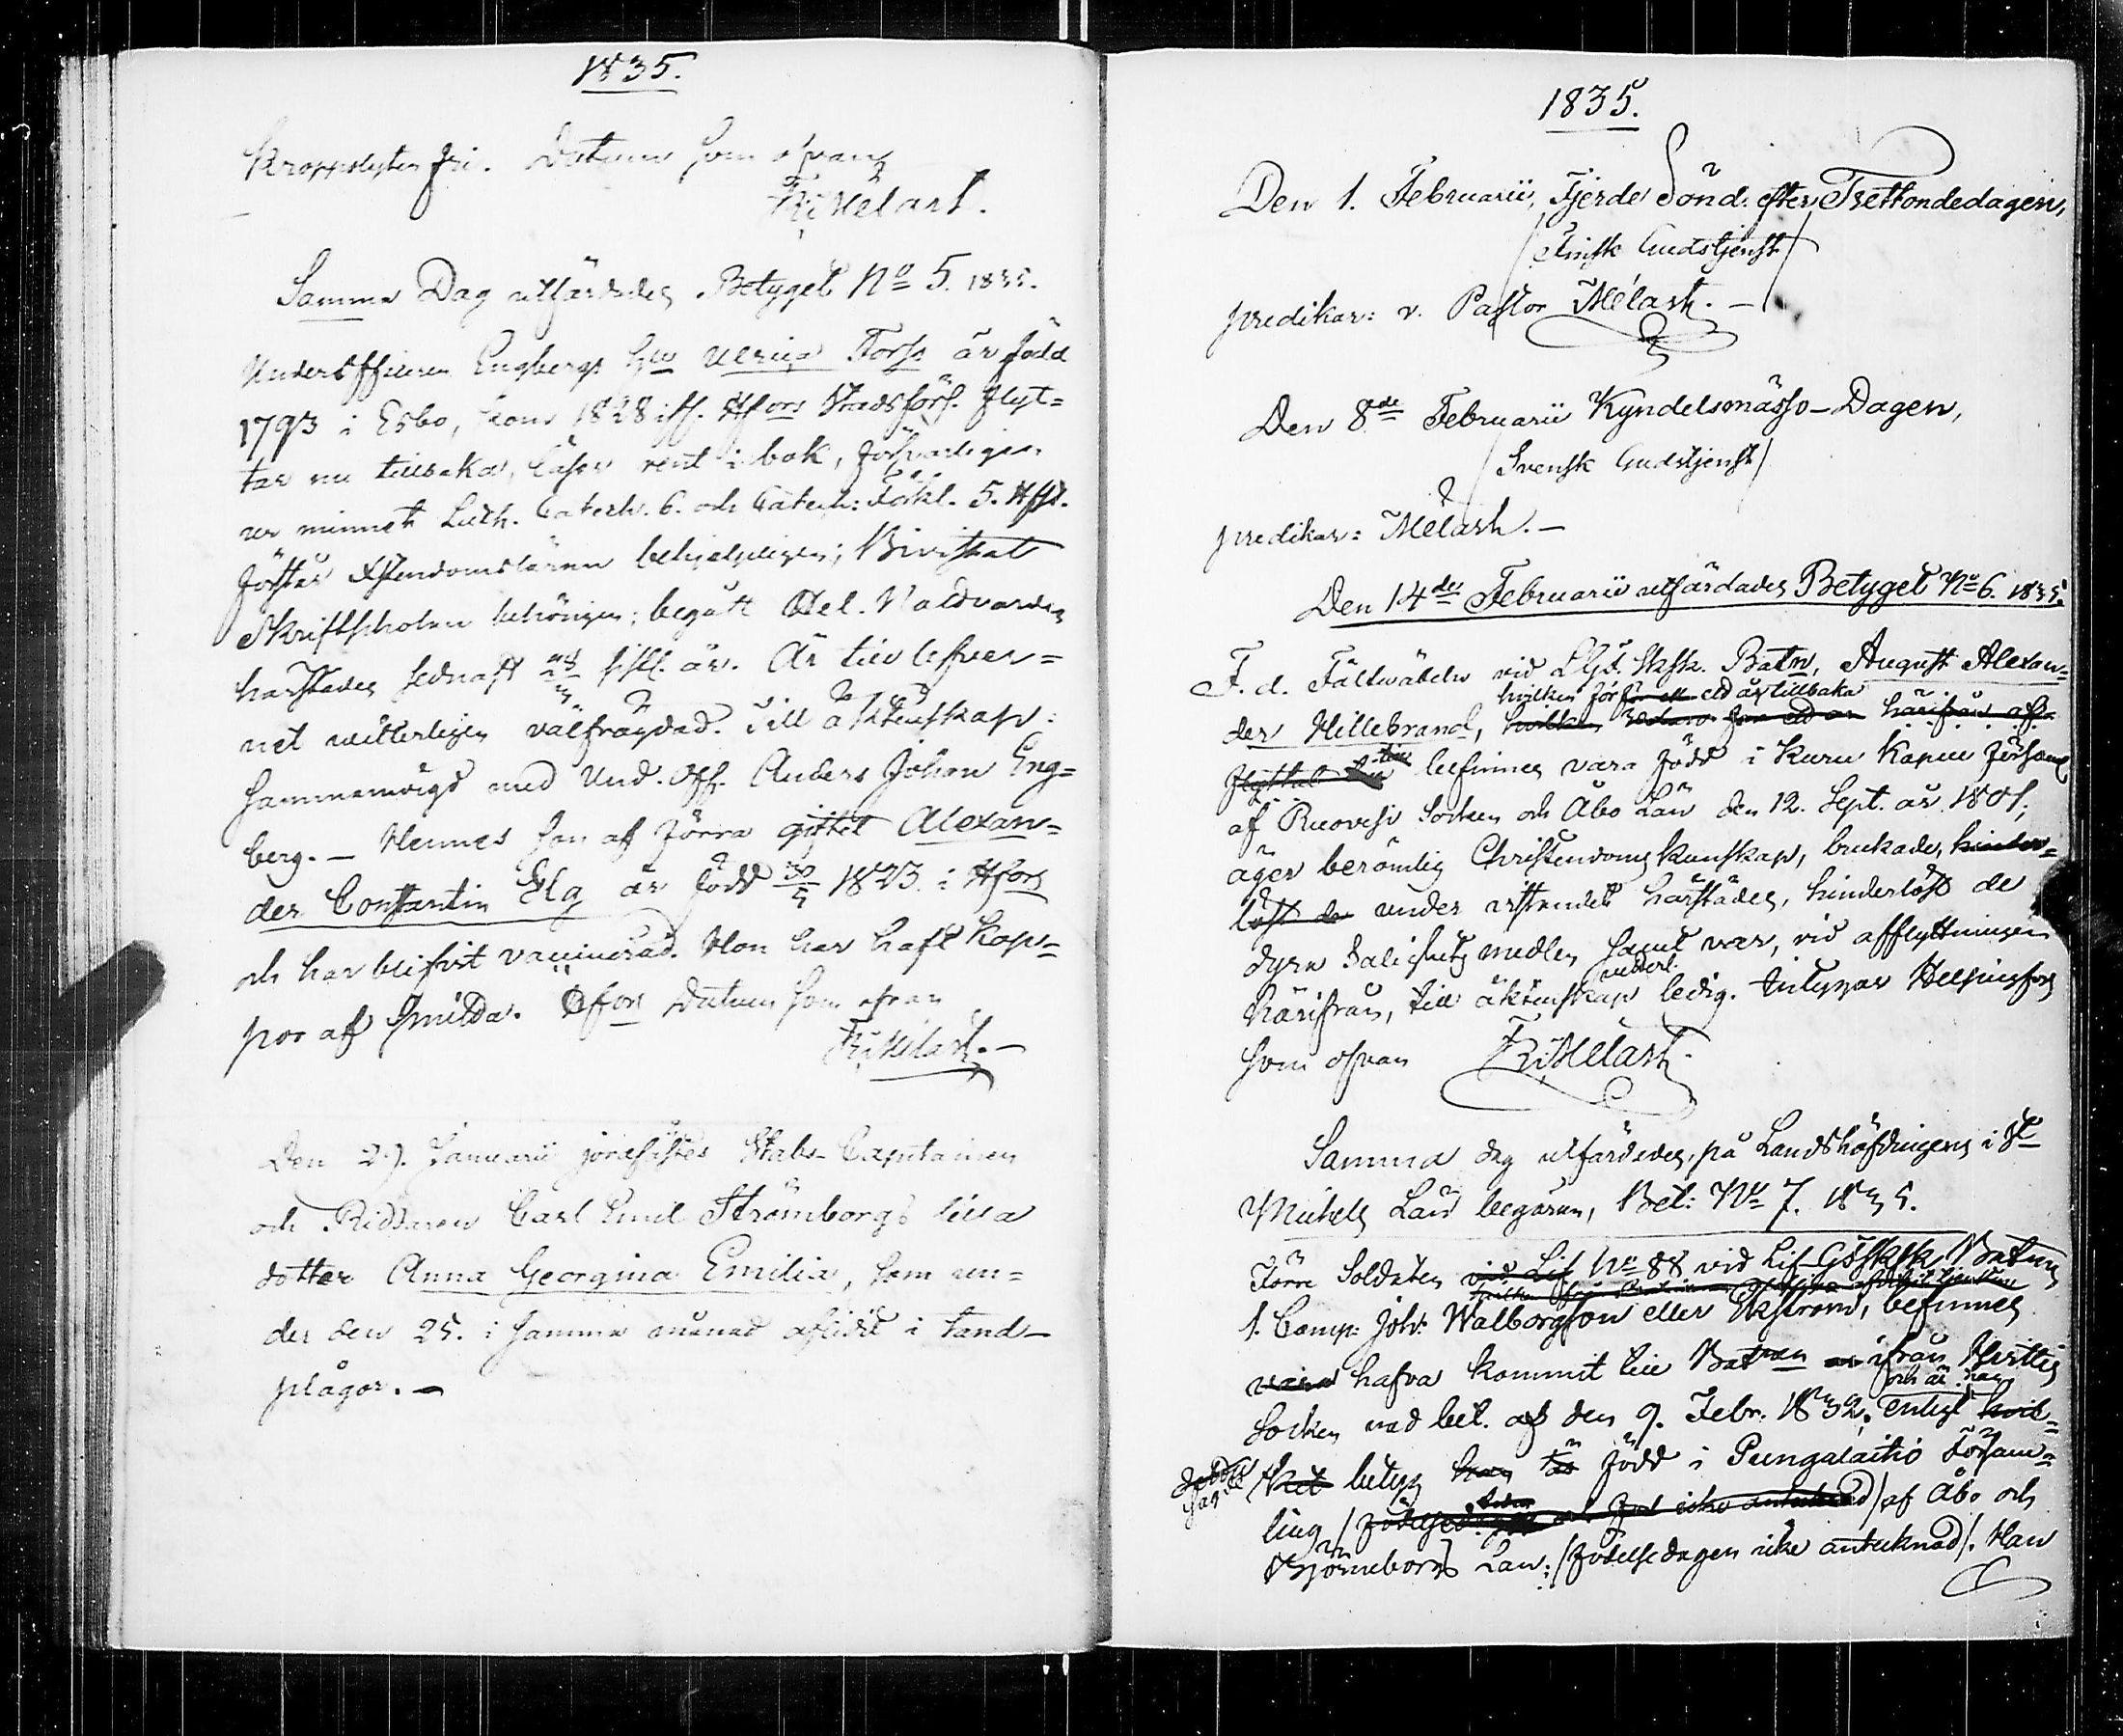 1835.
Kroppslyten fri. Datum som ofvan
Fr: Melart.
Samma Dag utfärdades Betyget No 5. 1835.
Underofficeren Engbergs Hu Ulrica Forss är född
1793 i Esbo, kom 1828 ifr. Hfors Stadsförs. flyt=
tar nu tillbaka, läser rent i bok, försvarligen
ur minnet Luth. Catech. 6. och Catech: Förkl. 5. Hfst.
förstår Xstendomsläran behjelpligen; Bivistat
Skriftskolan behörigen; begått H. Nattvarden
härstädes sednast sistl. år. Är till lefver=
net witterligen välfrägdad. Till äktenskap:
sammanvigd med Und. Off. Anders Johan Eng=
berg. — Hennes son af förra giftet Alexan=
der Constantin Elg är född 30/5 1823. i Hfors
och har blifvit vaccinerad. Hon har haft Kop=
por af smitta. Hfors Datum som ofvan
Fr: Melart. —
Den 29. Januarii jordfästes Stabs-Capitainen
och Riddaren Carl Emil Strömborgs lilla
dotter Anna Georgina Emilia, som un=
der den 25. i samma månad aflidit i tand-
plågor. —
1835.
Den 1. Februarii, Fjerde Sönd. efter Trettondedagen,
/Finsk Gudstjenst/
predikar: v. Pastor Mélart. —
Den 8de Februarii Kyndelsmässo-Dagen,
/Svensk Gudstjenst/
predikar: Mélart. —
Den 14de Februarii utfärdades Betyget No 6. 1835.
F. d. Fältwäbeln vid LGd. Sksk. Batn, August Alexan=
hvilken för en tid är tillbaka
der Hillebrand, härifrån af=
flyttat befinnes vara född i Kuru Kapell Församl
af Ruovesi Socken och Åbo Län den 12. Sept. år 1801,
äger berömlig Christendoms kunskap, brukade, hinder=
löst de under vistandet härstädes, hinderlöst de
dyra Salighets medlen samt var, vid afflyttningen
vetterl.
härifrån, till äktenskap ledig. betygar Helsingfors
som ofvan Fr: Melart.
Samma dag utfärdades, på Landshöfdingens i St
Michels Län begäran, Bet: No 7. 1835.
Förra Soldaten vid Lif No 88 vid Lif GdSkSk. Batn
1. Comp: Joh: Walborgsson eller Ekström, befinnes
vara hafva kommit till Bat ifrån Hvittis
och är han
Socken med bet. af den 9. Febr. 1832, enligt hvil=
ket betyg han är född i Pungalaitio Försam=
ling / af Åbo och
Björneborgs Län; /födelsedagen icke antecknad/. Han